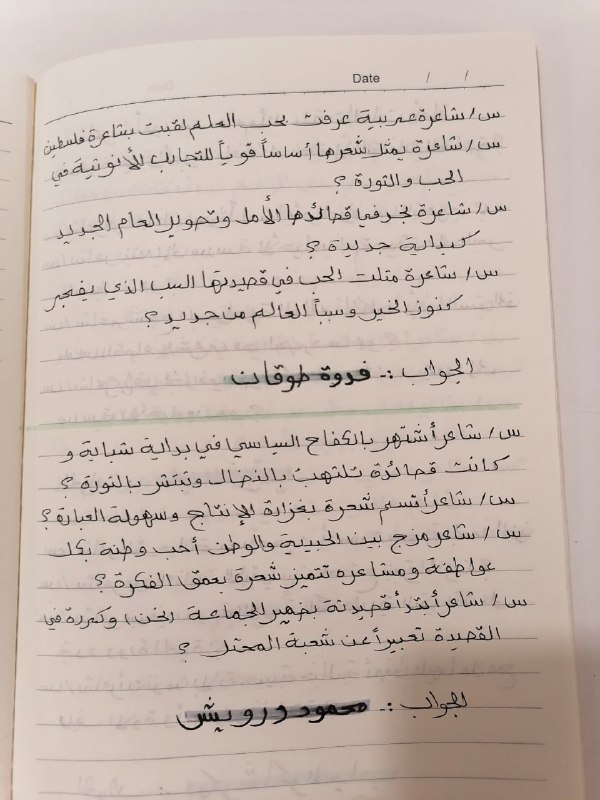 Date / /
س/ شاعرة عربية عرفت بحب العلم لقبت بشاعرة فلسطين
س/ شاعرة يمثل شعرها أساساً قوياً للتجارب الأنوثية في
الحب والثورة ؟
س/ شاعرة نجد في قصائدها الأمل وتصوير العام الجديد
كبداية جديدة ؟
س/ شاعرة مثلت الحب في قصيدتها السبب الذي يفجر
كنوز الخير وسبباً العالم من جديد ؟
الجواب :- فدوة طوقان
س/ شاعر أشتهر بالكفاح السياسي في بداية شبابة و
كانت قصائدة تلتهب بالنضال وتبتشر بالثورة ؟
س/ شاعر أتسم شعرة بغزارة الإنتاج وسهولة العبارة ؟
س/ شاعر مزج بين الحبيبة والوطن أحب وطنة بكل
عواطفة ومشاعره تتميز شعرة بعمق الفكرة ؟
س/ شاعر أبتدأ قصيدتة بضمير الجماعة (نحن) وكررة في
القصيدة تعبيراً عن شعبة المحتل ؟
الجواب :- محمود درويش